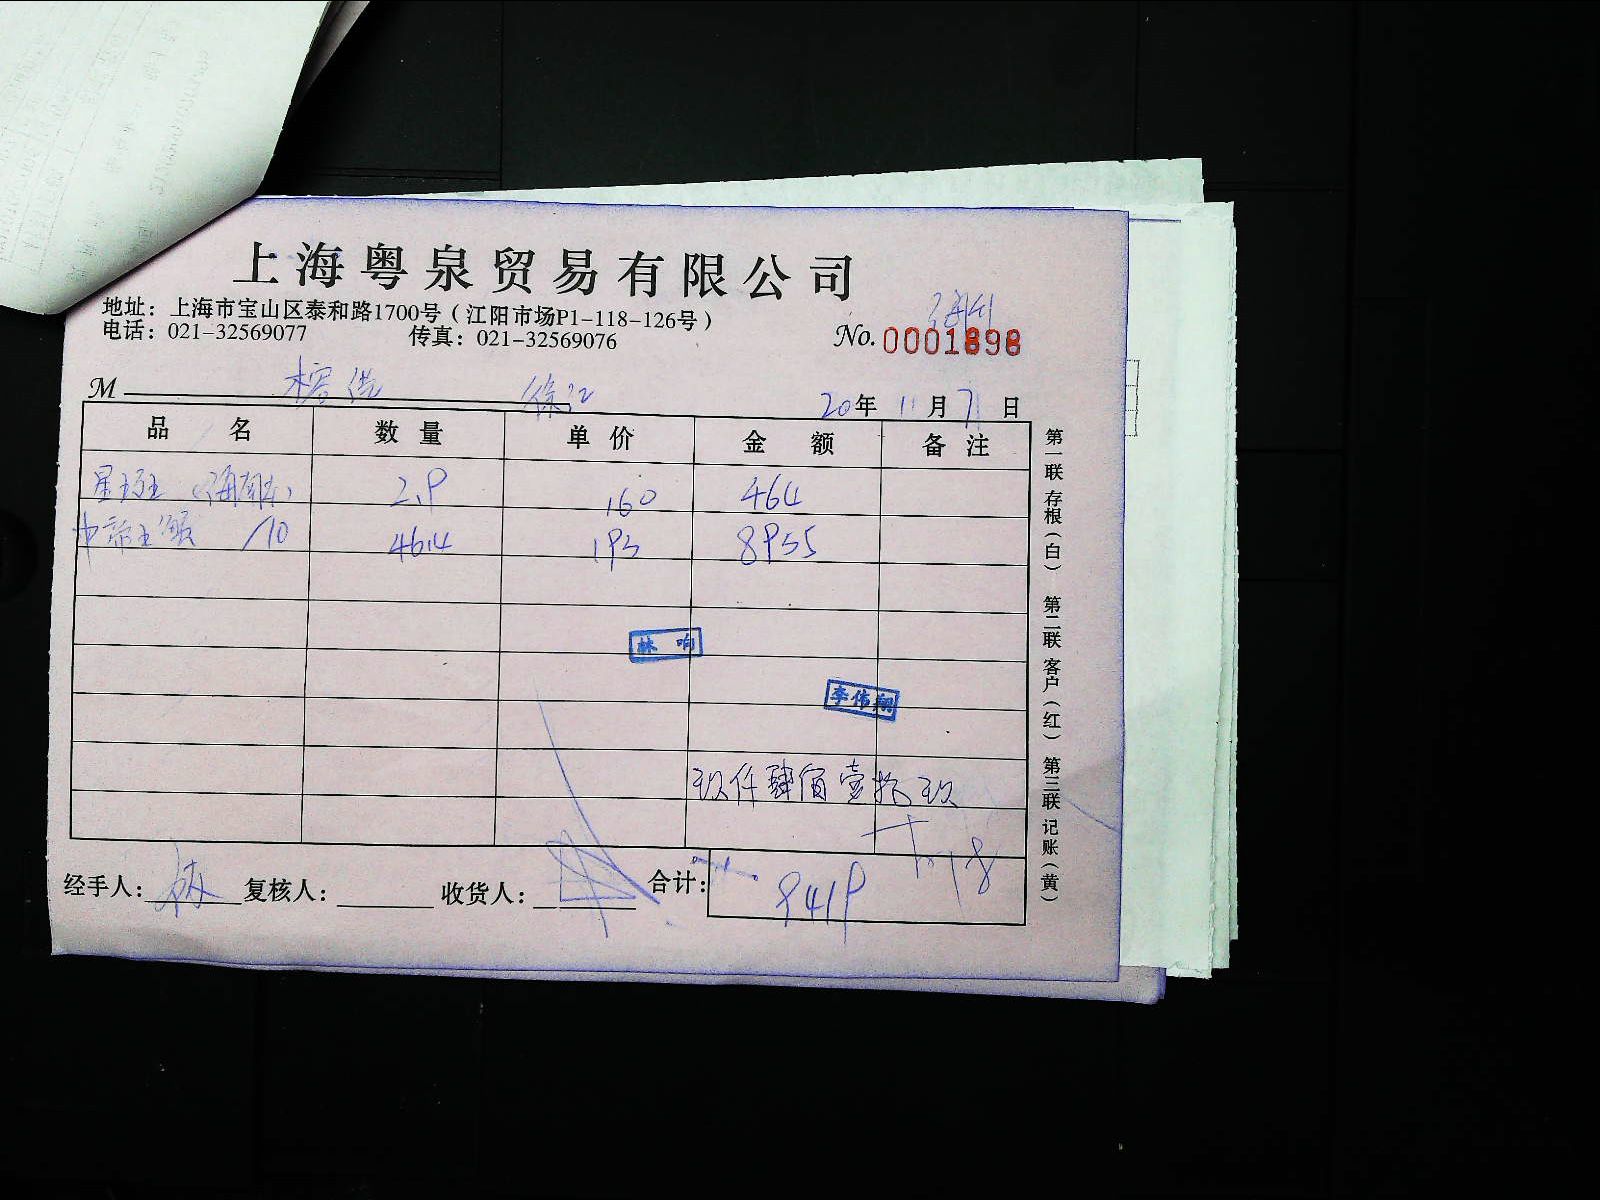 上海粤泉贸易有限公司
地址：上海市宝山区泰和路1700号（江阳市场P1-118-126号）
电话：021-32569077 传真：021-32569076
No. 0001898
M 徐汇
20年 11月 7日
品名 数量 单价 金额 备注
星斑 2.9 160 464
中 10 46.4 193 8955
林响
李伟翔
玖仟肆佰壹拾玖
11.18
经手人： 林 复核人： 收货人： 合计： 9419
第一联 存根（白） 第二联 客户（红） 第三联 记账（黄）